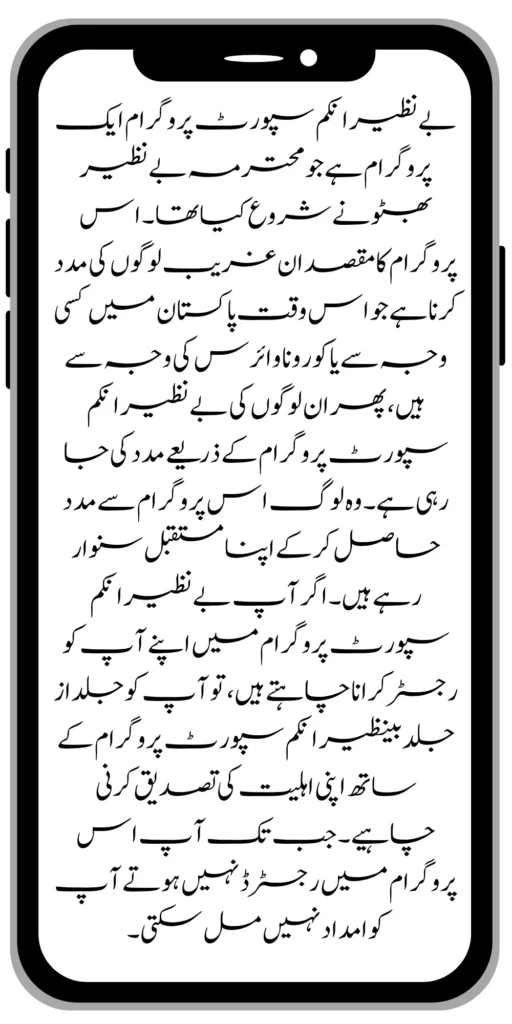 بے نظیر انکم سپورٹ پروگرام ایک
پروگرام ہے جو محترمہ بے نظیر
بھٹو نے شروع کیا تھا۔ اس
پروگرام کا مقصد ان غریب لوگوں کی مدد
کرنا ہے جو اس وقت پاکستان میں کسی
وجہ سے یا کورونا وائرس کی وجہ سے
ہیں، پھر ان لوگوں کی بے نظیر انکم
سپورٹ پروگرام کے ذریعے مدد کی جا
رہی ہے۔ وہ لوگ اس پروگرام سے مدد
حاصل کر کے اپنا مستقبل سنوار
رہے ہیں۔ اگر آپ بے نظیر انکم
سپورٹ پروگرام میں اپنے آپ کو
رجسٹر کرانا چاہتے ہیں، تو آپ کو جلد از
جلد بینظیر انکم سپورٹ پروگرام کے
ساتھ اپنی اہلیت کی تصدیق کرنی
چاہیے۔ جب تک آپ اس
پروگرام میں رجسٹرڈ نہیں ہوتے آپ
کو امداد نہیں مل سکتی۔